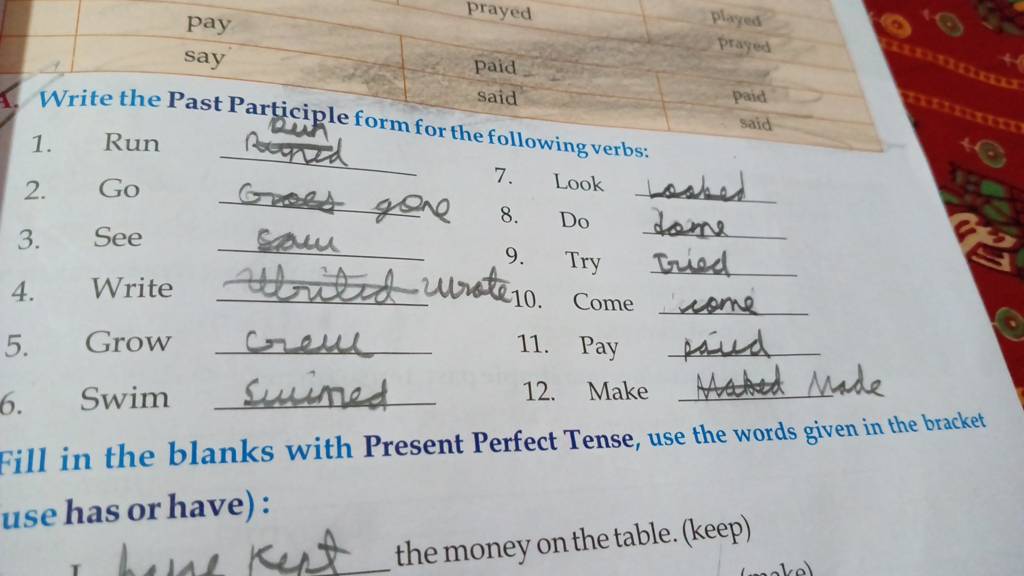 prayed played
pay prayed
say paid paid
said said
A. Write the Past Participle form for the following verbs:
1. Run Run
2. Go Goes gone
3. See Saw
4. Write Writed wrote
5. Grow Grew
6. Swim Swimed
7. Look Looked
8. Do done
9. Try Tried
10. Come come
11. Pay paied
12. Make Maked Made
Fill in the blanks with Present Perfect Tense, use the words given in the bracket
use has or have) :
I have Kept the money on the table. (keep)
(make)